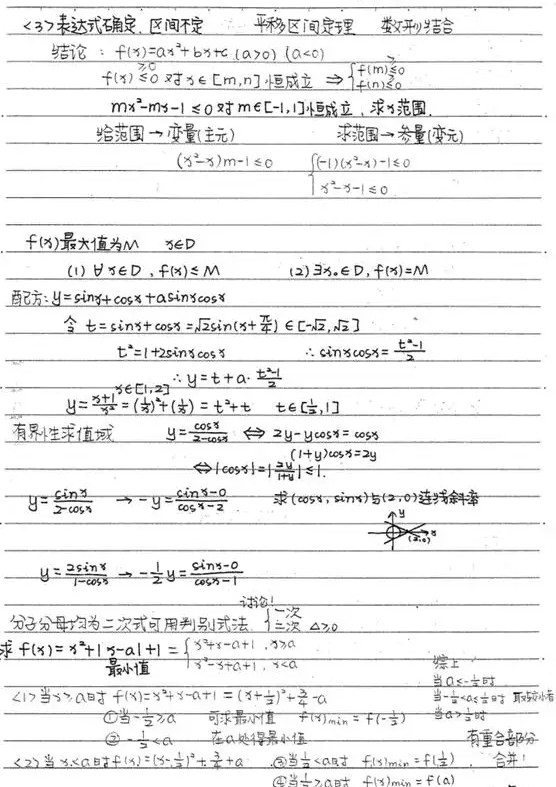 <3>表达式确定,区间不定 平移区间定理 数形结合
结论: f(x)=ax²+bx+c (a>0) (a<0)
f(x)≤0 对x∈[m,n]恒成立 ⇒ {f(m)≤0
≥0 f(n)≤0
mx²-mx-1≤0对m∈[-1,1]恒成立,求x范围.
给范围→变量(主元) 求范围→参量(变元)
(x²-x)m-1≤0 {(-1)(x²-x)-1≤0
x²-x-1≤0
f(x)最大值为M x∈D
(1) ∀x∈D, f(x)≤M (2)∃x₀∈D, f(x)=M
配方: y=sinx+cosx+asinxcosx
令 t=sinx+cosx=√2sin(x+π/4)∈[-√2,√2]
t²=1+2sinxcosx ∴sinxcosx=(t²-1)/2
∴y=t+a·(t²-1)/2
x∈[1,2]
y=(x+1)/x²=(1/x)²+(1/x)=t²+t t∈[1/2,1]
有界性求值域 y=cosx/(2-cosx) ⇔ 2y-ycosx=cosx
(1+y)cosx=2y
⇔|cosx|=|2y/(1+y)|≤1.
y=sinx/(2-cosx) → -y=(sinx-0)/(cosx-2) 求(cosx,sinx)与(2,0)连线斜率
y x (2,0)
y=2sinx/(1-cosx) → -1/2y=(sinx-0)/(cosx-1)
讨论!
分子分母均为二次式可用判别式法 {一次
二次 △≥0
求 f(x)=x²+|x-a|+1={x²+x-a+1, x≥a
最小值 x²-x+a+1, x<a
综上
<1>当x≥a时 f(x)=x²+x-a+1=(x+1/2)²+3/4-a
当a≤-1/2时
当-1/2<a≤1/2时 取较小者
①当-1/2≥a 可求最小值 f(x)min=f(-1/2)
当a>1/2时
②-1/2<a 在a处得最小值
有重合部分
<2>当x<a时f(x)=(x-1/2)²+3/4+a ③当1/2<a时 f(x)min=f(1/2), 合并!
④当1/2≥a时 f(x)min=f(a)